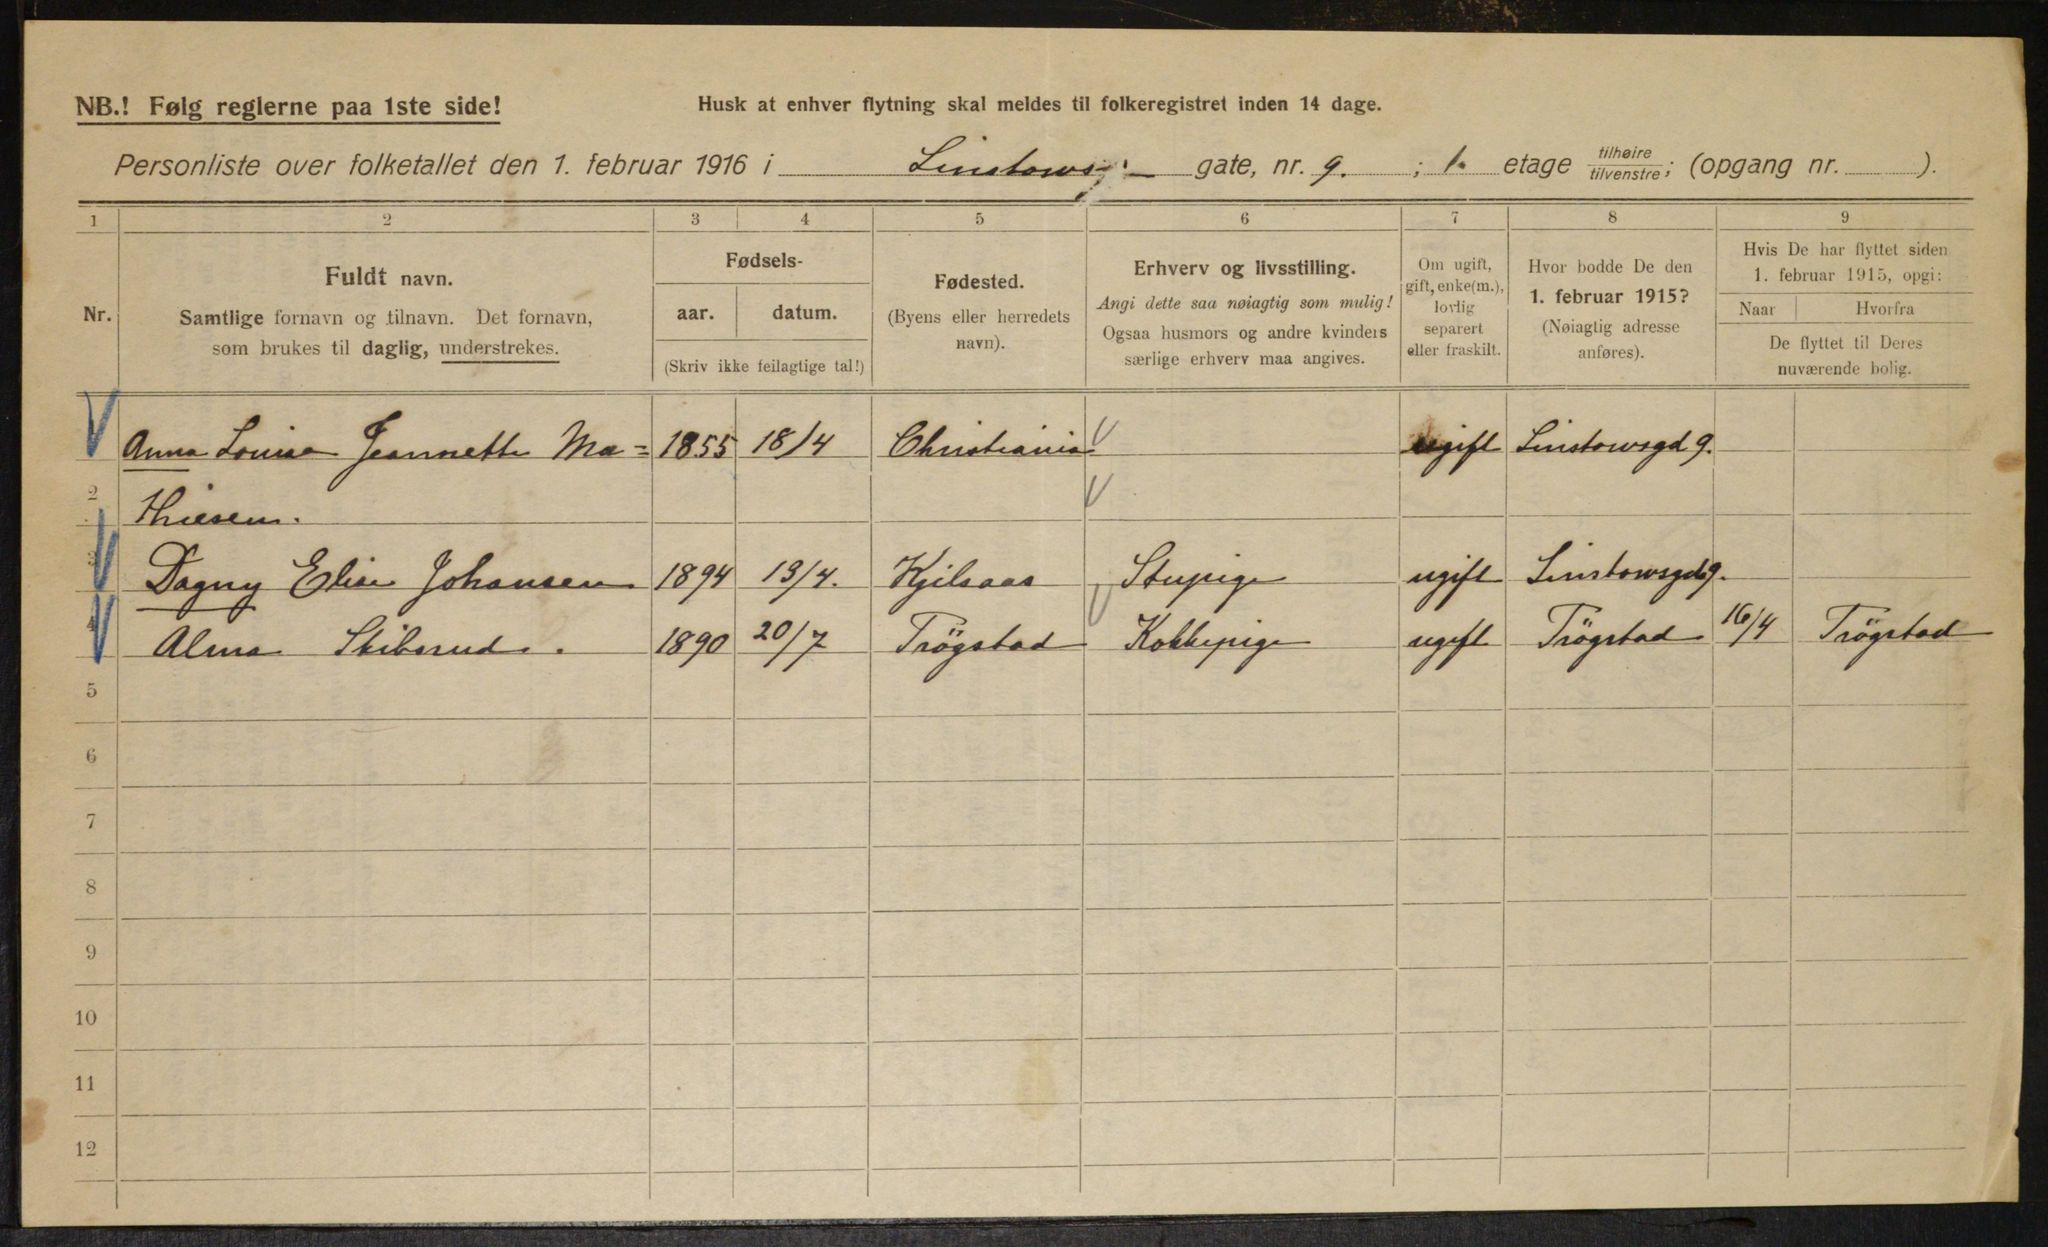 NB.! Følg reglerne paa 1ste side!
Husk at enhver flytning skal meldes til folkeregistret inden 14 dage.
Personliste over folketallet den 1. februar 1916 i Linstows gate, nr. 9. ; 1. etage tilhøire tilvenstre; (opgang nr. ).
1 2 3 4 5 6 7 8 9
Nr.
Fuldt navn.
Samtlige fornavn og tilnavn. Det fornavn,
som brukes til daglig, understrekes.
Fødsels-
aar. datum.
(Skriv ikke feilagtige tal!)
Fødested.
(Byens eller herredets
navn).
Erhverv og livsstilling.
Angi dette saa nøiagtig som mulig!
Ogsaa husmors og andre kvinders
særlige erhverv maa angives.
Om ugift,
gift, enke(m.),
lovlig
separert
eller fraskilt.
Hvor bodde De den
1. februar 1915?
(Nøiagtig adresse
anføres).
Hvis De har flyttet siden
1. februar 1915, opgi:
Naar Hvorfra
De flyttet til Deres
nuværende bolig.
Anna Louise Jeannette Ma= 1855 18/4 Christiania ugift Linstowsgd 9.
2 thiesen.
3 Dagny Elise Johansen 1894 13/4. Kjelsaas Stupige ugift Linstowsgd 9.
4 Alma Skibsrud . 1890 20/7 Trögstad Kokkepige ugift Trögstad 16/4 Trögstad
5
6
7
8
9
10
11
12